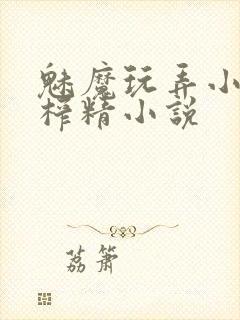 魅魔玩弄小
榨精小说
荔箫